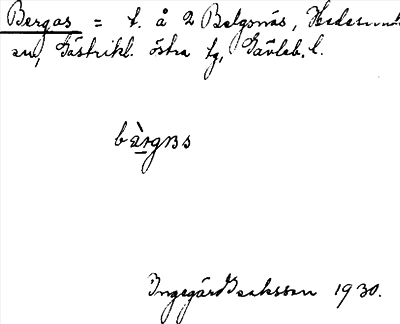 Bergas = t. å 2 Balgsnäs, Hedesunda
sn, Gästrikl. östra tg, Gävleb. l.
bàrgɐs
Ingegärd Isaksson 1930.